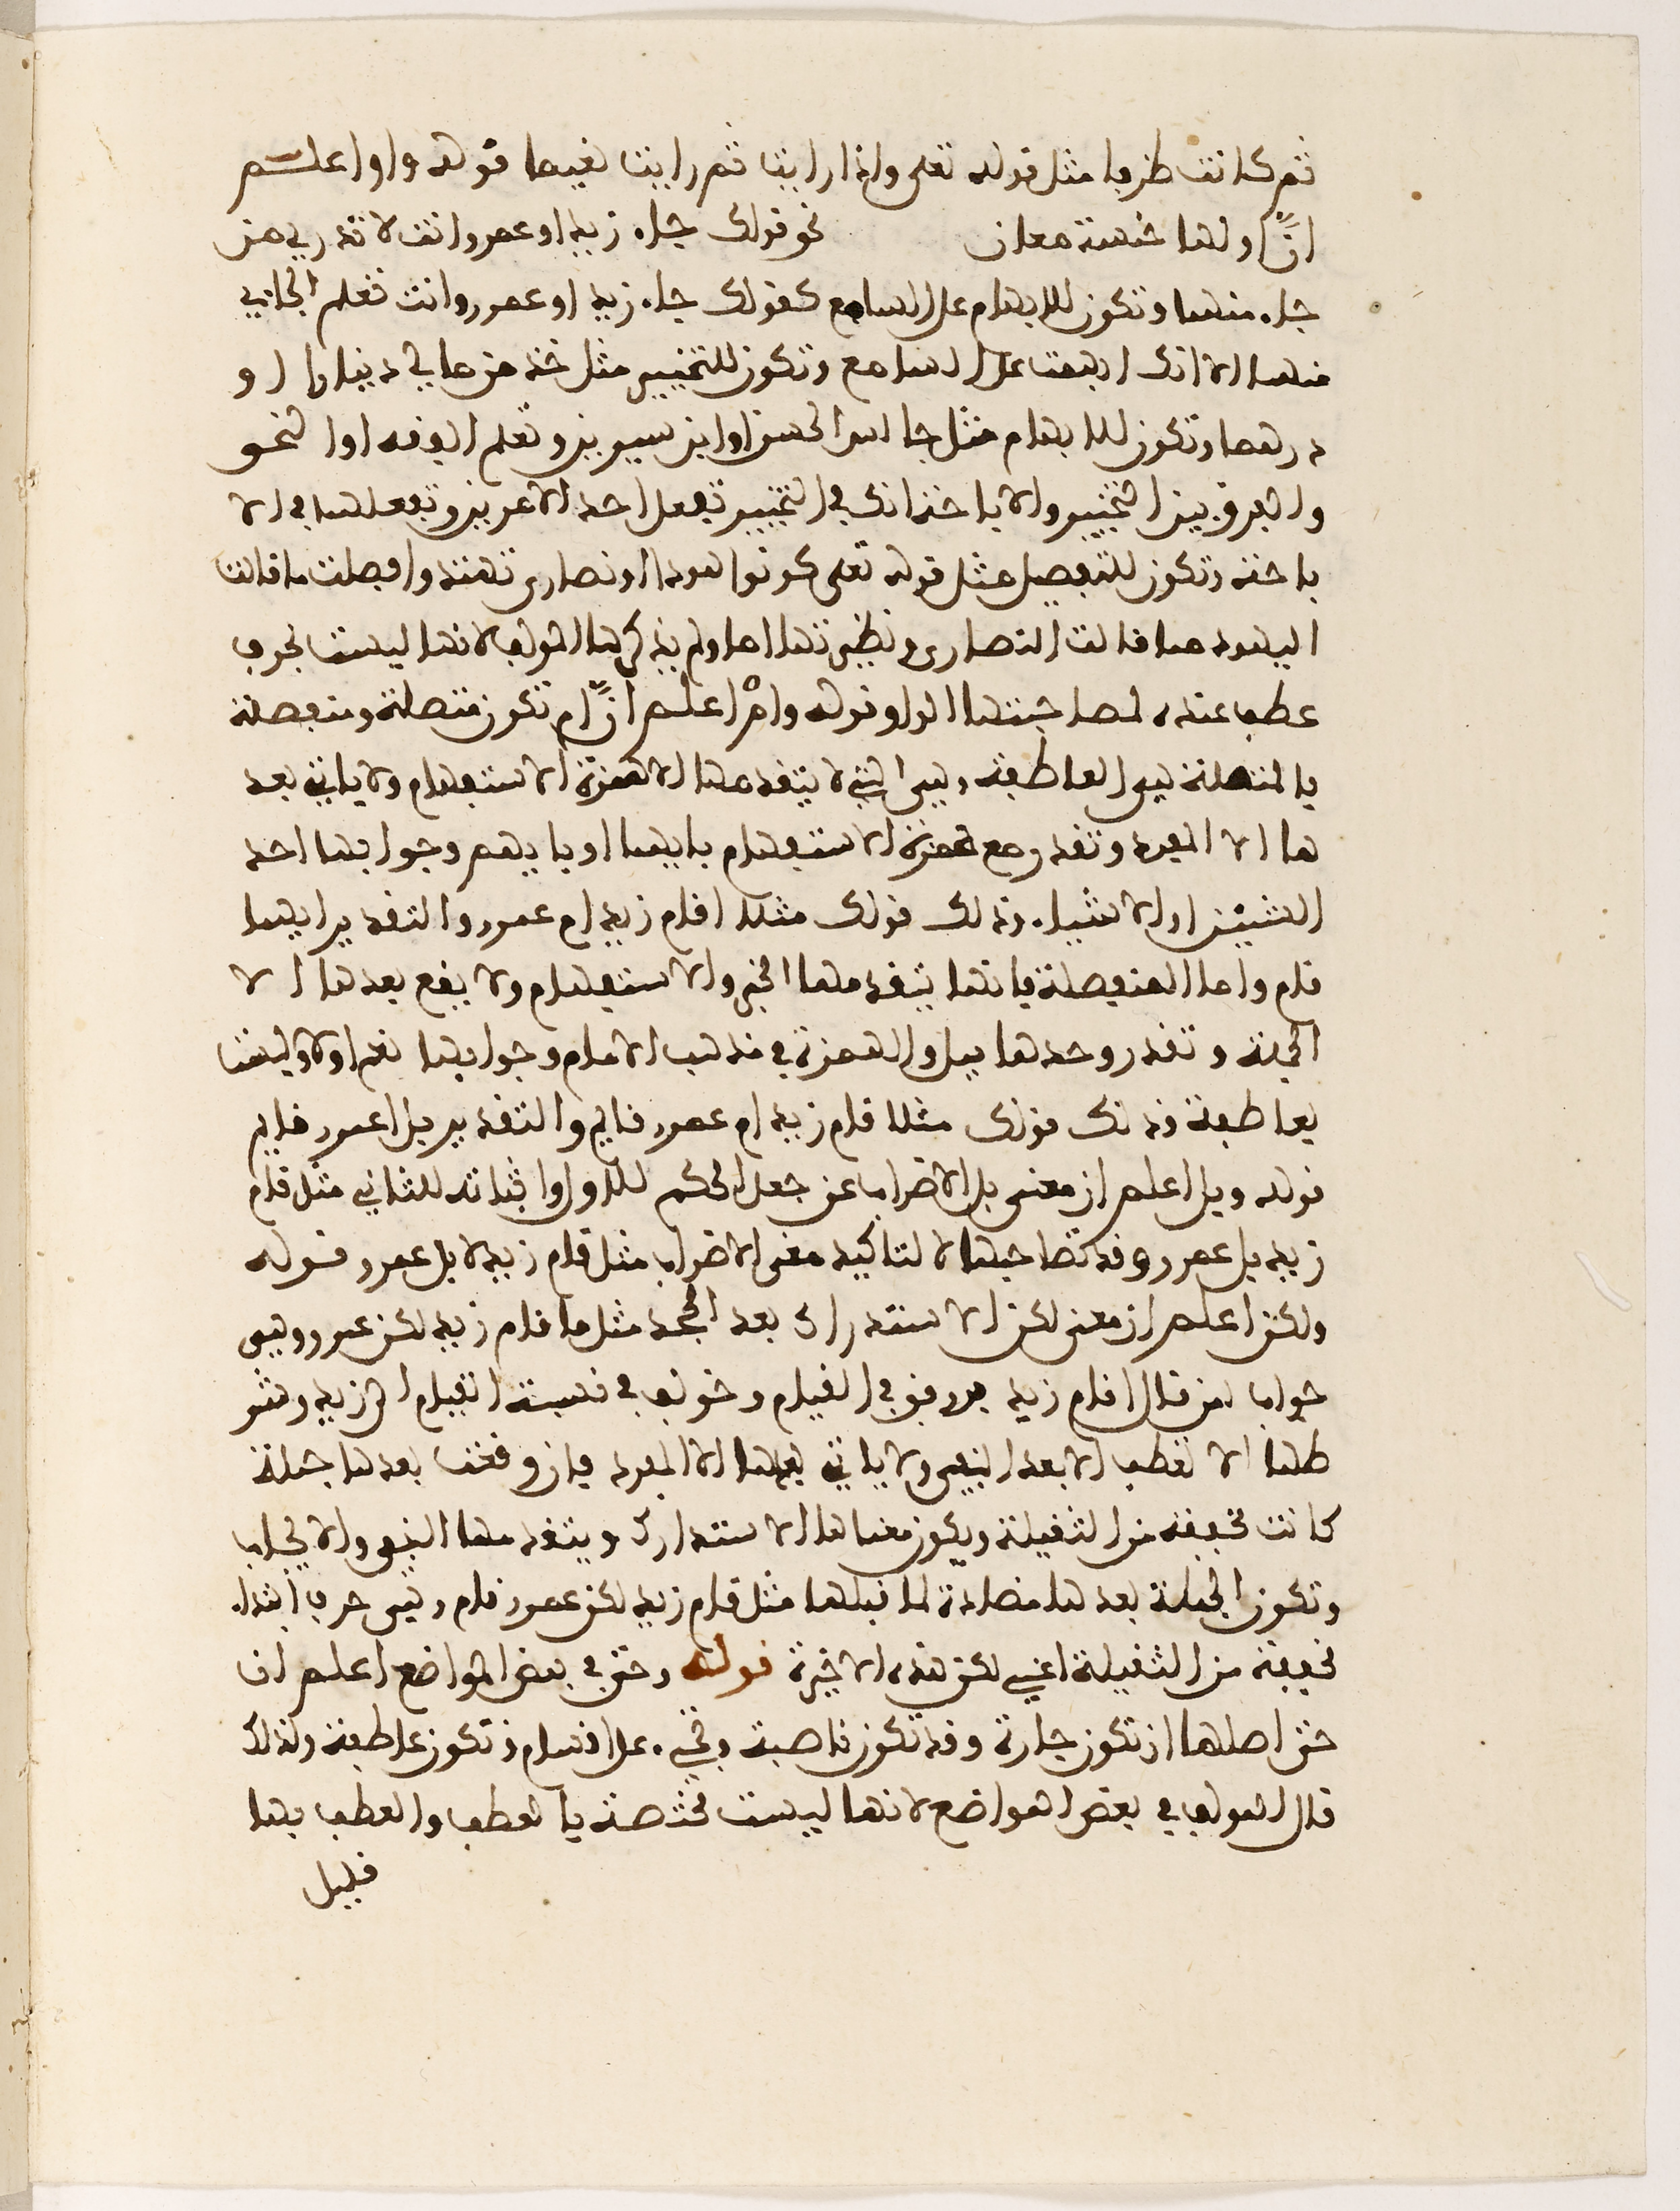 ثم كانت ظرفا مثل قوله تعلى واذا رايت ثم رايت نعيما قوله واو اعلم
انّ او لها خمسة معان نحو قولك جاء زيد او عمرو وانت لا تدري من
جاء منهما وتكون للابهام على السامع كقولك جاء زيد او عمرو وانت تعلم الجاءي
منهما الا انك ابهمت على السامع وتكون للتخيير مثل خذ من مالي دينارا او
درهما وتكون للابهام مثل جالس الحسن او ابن سيرين وتعلم الفقه او النحو
والفرق بين التخيير والاباحة انك في التخيير تفعل احد الامرين وتفعلهما في الا
باحة وتكون للتفصيل مثل قوله تعلى كونوا هودا او نصارى تهتدوا فصلت ما قالت
اليهود مما قالت النصارى ونظيرتها اما ولم يذكرها المولف لانها ليست بحرف
عطف عنده لمصاحبتها الواو قوله وامْ اعلم انّ ام تكون متصلة ومنفصلة
فالمتصلة هي العاطفة وهي التي لا يتقدمها الا همزة الاستفهام ولا ياتي بعد
ها الا المفرد وتقدر مع همزة الاستفهام بايهما او بايهم وجوابها احد
الشيئين او الاشياء وذلك قولك مثلا اقام زيد ام عمرو والتقدير ايهما
قام واما المنفصلة فانها يتقدمها الخبر والاستفهام ولا يقع بعدها الا
الجملة وتقدر وحدها ببل والهمزة في مذهب الامام وجوابها نعم او لا وليست
بعاطفة وذلك قولك مثلا قام زيد ام عمرو قايم والتقدير بل اعمرو قايم
قوله وبل اعلم ان معنى بل الاضراب عن جعل الحكم للاول واثباته للثاني مثل قام
زيد بل عمرو وقد تصاحبها لا لتاكيد معنى الاضراب مثل قام زيد لا بل عمرو قوله
ولكن اعلم ان معنى لكن الاستدراك بعد الجحد مثل ما قام زيد لكن عمرو وهي
جواب لمن قال اقام زيد في القيام وخولف في نسبة القيام الى زيد وشر
طها الا تعطف الا بعد النفي ولا ياتي بعدها الا المفرد فان وقعت بعدها جملة
كانت مخففة من الثقيلة ويكون معناها الاستدارك ويتقدمها النفي والايجاب
وتكون الجملة بعدها مضادة لما قبلها مثل قام زيد لكن عمرو قام وهي حرف ابتداء
خفيفة من الثقيلة اعني لكن هذه الاخيرة قوله وحتى في بعض المواضع اعلم ان
حتى اصلها ان تكون جارة وقد تكون ناصبة وتجيء على اقسام وتكون عاطفة ولذلك
قال المولف في بعض المواضع لانها ليست مختصة بالعطف والعطف بها
قليل